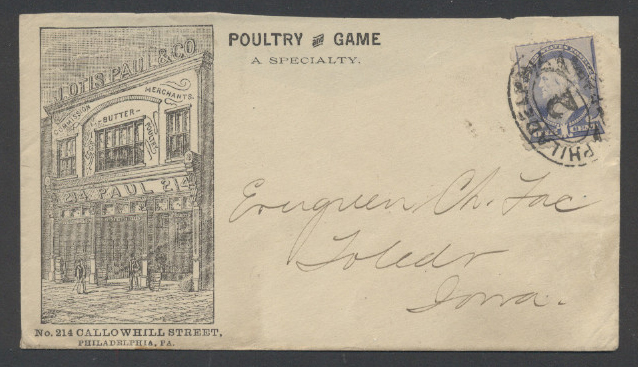 J. OTIS PAUL & CO.
COMMISSION MERCHANTS.
BUTTER
POULTRY
214 PAUL 214
No. 214 CALLOWHILL STREET,
PHILADELPHIA, PA.
POULTRY AND GAME
A SPECIALTY.
PHILADELPHIA
2
Evergreen Ch. Fac.
Toledo
Iowa.